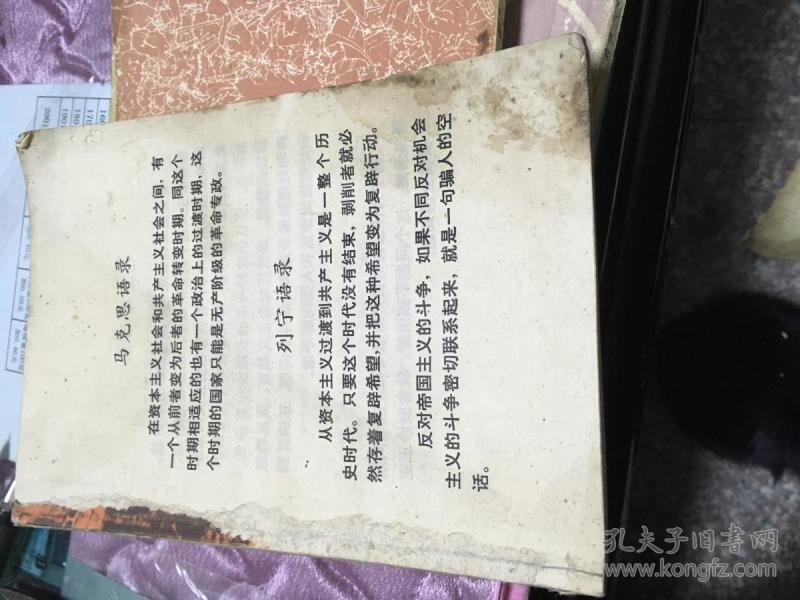 马克思语录
在资本主义社会和共产主义社会之间，有
一个从前者变为后者的革命转变时期。同这个
时期相适应的也有一个政治上的过渡时期，这
个时期的国家只能是无产阶级的革命专政。
列宁语录
从资本主义过渡到共产主义是一整个历
史时代。只要这个时代没有结束，剥削者就必
然存着复辟希望，并把这种希望变为复辟行动。
反对帝国主义的斗争，如果不同反对机会
主义的斗争密切联系起来，就是一句骗人的空
话。
孔夫子旧书网
www.kongfz.com